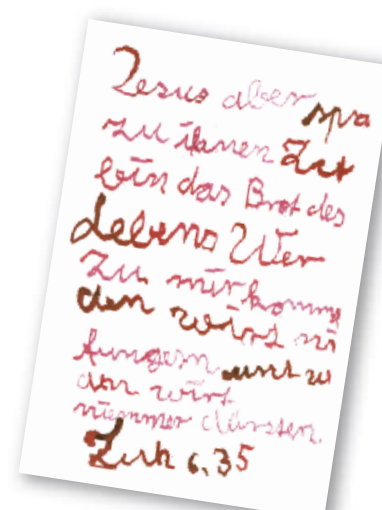 Jesus aber spra
zu ihnen Ich
bin das Brot des
Lebens Wer
zu mir komme
den wird ni
hungern und w
dar wirt
niemmer dürsten.
Luk 6,35